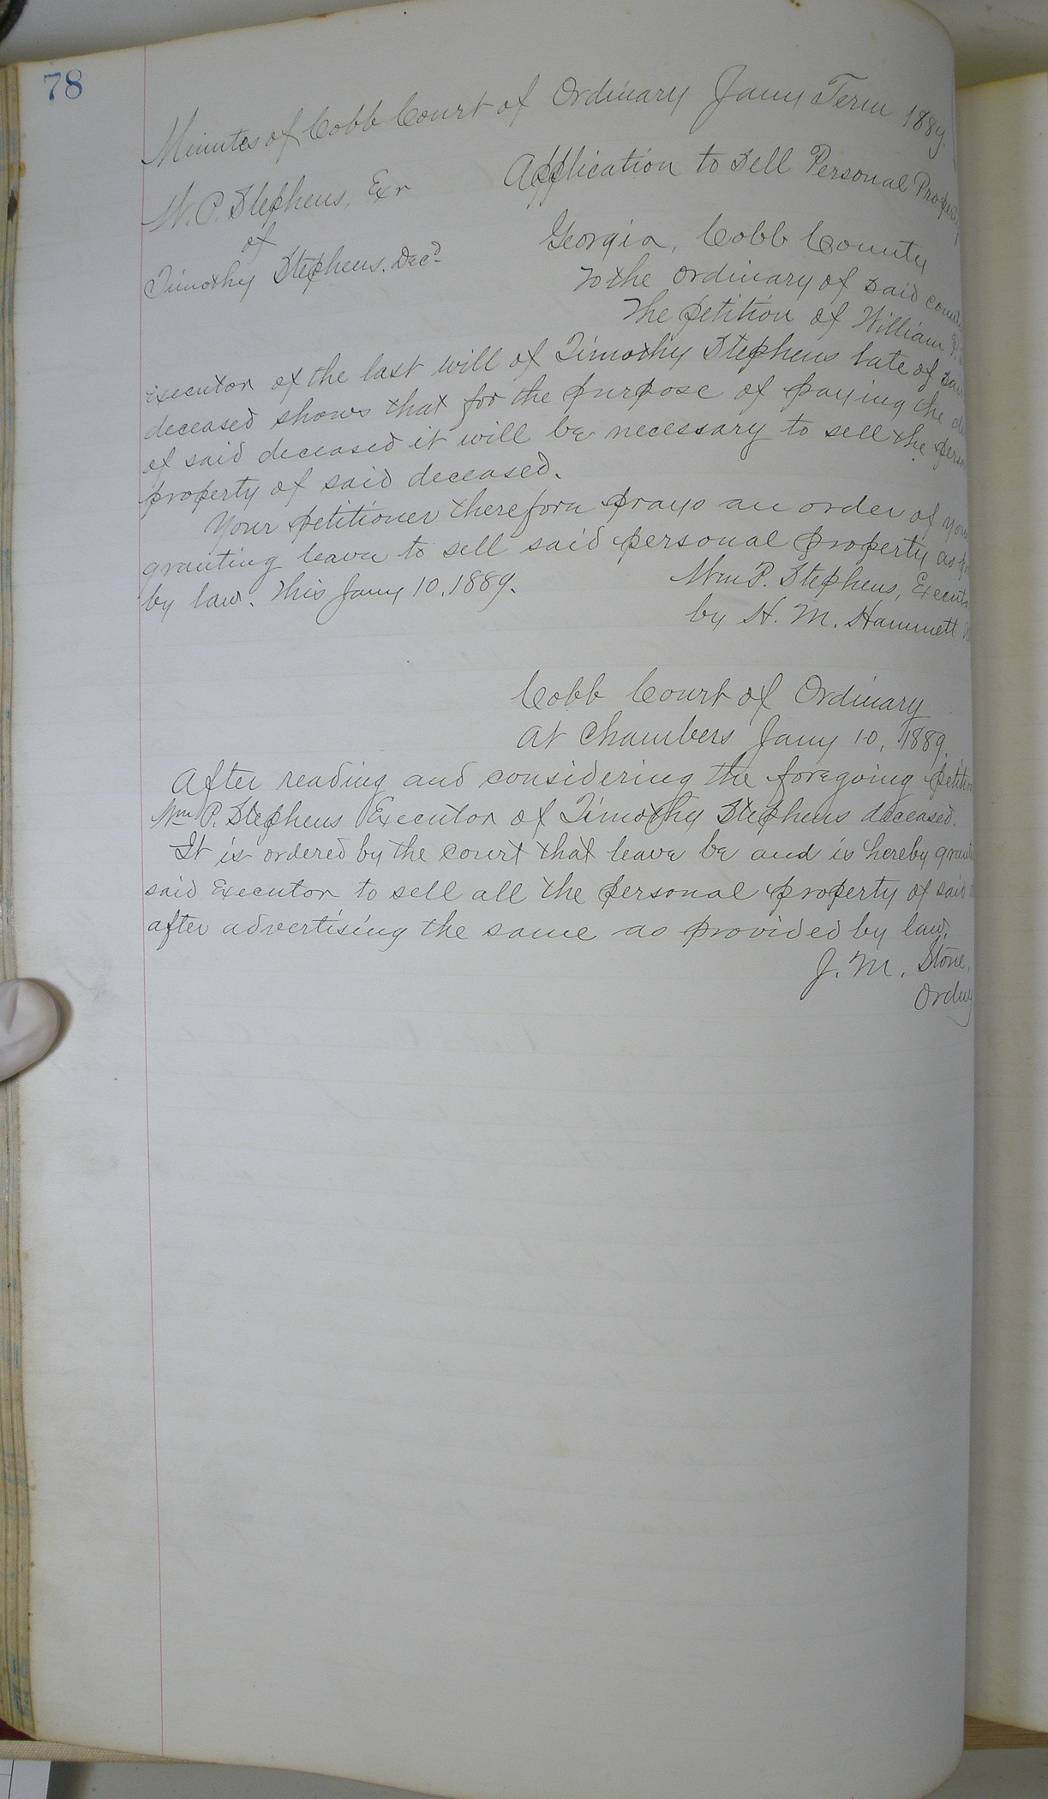 78
Minutes of Cobb Court of Ordinary Jany Term 1889.
W. P. Stephens, Exr
of
Timothy Stephens, Decd
Application to Sell Personal Property
Georgia, Cobb County
To the Ordinary of said
The petition of William P.
executor of the last will of Timothy Stephens late of
deceased shows that for the purpose of paying the
of said deceased it will be necessary to sell the
property of said deceased.
Your petitioner therefore prays an order of
granting leave to sell said personal property as
by law. This Jany 10, 1889.
Wm P. Stephens,
by H. M. Hammett
Cobb Court of Ordinary
At Chambers Jany 10, 1889.
After reading and considering the foregoing
Wm P. Stephens Executor of Timothy Stephens deceased.
It is ordered by the court that leave be and is hereby
said Executor to sell all the personal property of said
after advertising the same as provided by law.
J. M. Stone,
Ordny